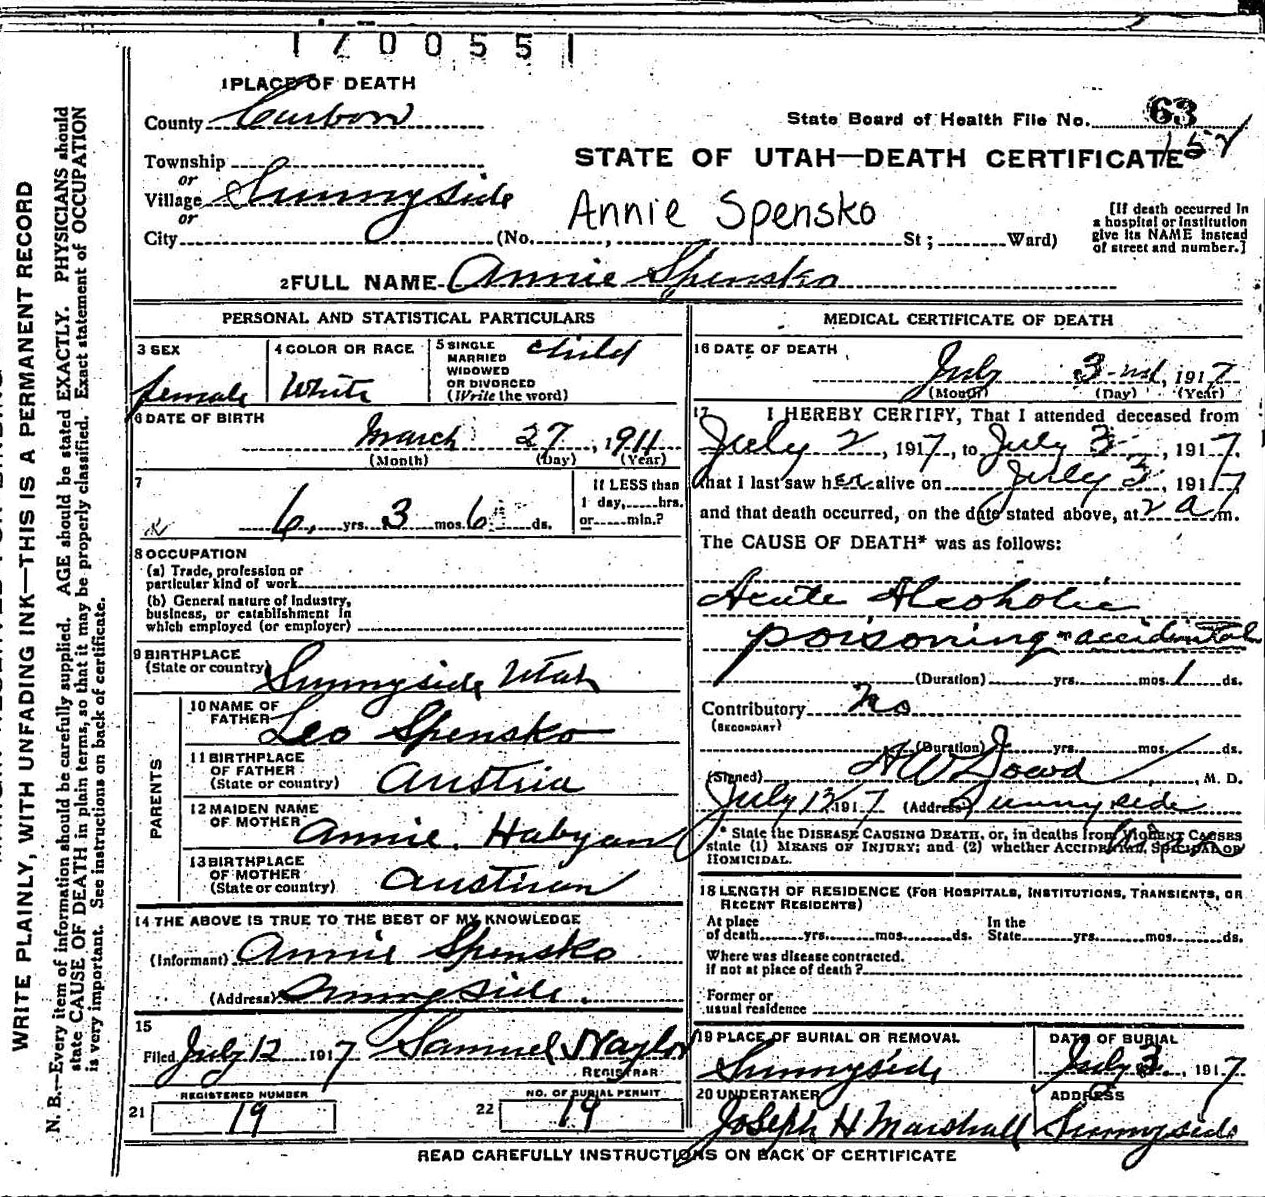 1700551
1 PLACE OF DEATH
County Carbon
State Board of Health File No. 63
Township
or
Village Sunnyside
STATE OF UTAH—DEATH CERTIFICATE
or
Annie Spensko
City (No. , St; Ward)
[If death occurred in
a hospital or institution
give its NAME instead
of street and number.]
2 FULL NAME Annie Spensko
PERSONAL AND STATISTICAL PARTICULARS
3 SEX
female
4 COLOR OR RACE
White
5 SINGLE
MARRIED
WIDOWED
OR DIVORCED
(Write the word)
child
6 DATE OF BIRTH
March 27, 1911
(Month) (Day) (Year)
7
6 yrs. 3 mos. 6 ds.
If LESS than
1 day, hrs.
or min.?
8 OCCUPATION
(a) Trade, profession or
particular kind of work
(b) General nature of Industry,
business, or establishment in
which employed (or employer)
9 BIRTHPLACE
(State or country) Sunnyside Utah
PARENTS
10 NAME OF
FATHER Leo Spensko
11 BIRTHPLACE
OF FATHER
(State or country) Austria
12 MAIDEN NAME
OF MOTHER Annie Habyan
13 BIRTHPLACE
OF MOTHER
(State or country) Austrian
14 THE ABOVE IS TRUE TO THE BEST OF MY KNOWLEDGE
(Informant) Annie Spensko
(Address) Sunnyside.
15
Filed July 12 1917 Samuel Naylor
REGISTRAR
REGISTERED NUMBER
21 19
NO. OF BURIAL PERMIT
22 19
MEDICAL CERTIFICATE OF DEATH
16 DATE OF DEATH
July 3rd, 1917
(Month) (Day) (Year)
17 I HEREBY CERTIFY, That I attended deceased from
July 2, 1917, to July 3, 1917.
that I last saw her alive on July 3, 1917
and that death occurred, on the date stated above, at 2 a m.
The CAUSE OF DEATH* was as follows:
Acute Alcoholic
poisoning - accidental
(Duration) yrs. mos. 1 ds.
Contributory No
(SECONDARY)
(Duration) yrs. mos. ds.
(Signed) A W Dowd, M. D.
July 12, 1917 (Address) Sunnyside
* State the DISEASE CAUSING DEATH, or, in deaths from VIOLENT CAUSES
state (1) MEANS OF INJURY; and (2) whether ACCIDENTAL, SUICIDAL OR
HOMICIDAL.
18 LENGTH OF RESIDENCE (FOR HOSPITALS, INSTITUTIONS, TRANSIENTS, OR
RECENT RESIDENTS)
At place
of death yrs. mos. ds.
In the
State yrs. mos. ds.
Where was disease contracted.
if not at place of death?
Former or
usual residence
19 PLACE OF BURIAL OR REMOVAL
Sunnyside
DATE OF BURIAL
July 3, 1917
20 UNDERTAKER
Joseph H Marshall
ADDRESS
Sunnyside
READ CAREFULLY INSTRUCTIONS ON BACK OF CERTIFICATE
WRITE PLAINLY, WITH UNFADING INK—THIS IS A PERMANENT RECORD
N. B.—Every item of information should be carefully supplied. AGE should be stated EXACTLY. PHYSICIANS should
state CAUSE OF DEATH in plain terms, so that it may be properly classified. Exact statement of OCCUPATION
is very important. See instructions on back of certificate.